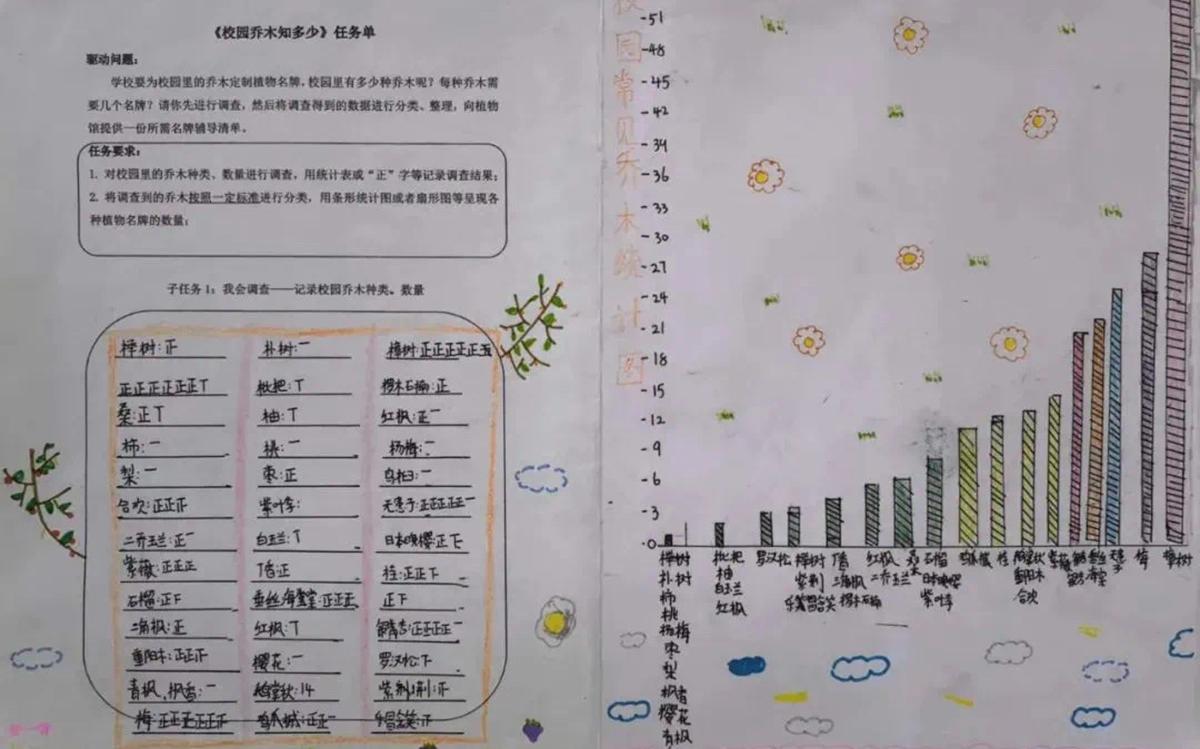 《校园乔木知多少》任务单
驱动问题：
学校要为校园里的乔木定制植物名牌，校园里有多少种乔木呢？每种乔木需
要几个名牌？请你先进行调查，然后将调查得到的数据进行分类、整理，向植物
馆提供一份所需名牌辅导清单。
任务要求：
1. 对校园里的乔木种类、数量进行调查，用统计表或“正”字等记录调查结果；
2. 将调查到的乔木按照一定标准进行分类，用条形统计图或者扇形图等呈现各
种植物名牌的数量；
子任务 1：我会调查——记录校园乔木种类、数量
榉树：正 朴树：一 樟树：正正正正正
正正正正正正丅 枇杷：丅 石楠：正
桑：正丅 柚：丅 红枫：正一
柿：一 桃：一 杨梅：一
梨：一 枣：正 乌桕：一
合欢：正正正 紫叶李： 无患子：正正正正一
二乔玉兰：正一 白玉兰：丅 日本晚樱：正下
紫薇：正正正 桂：正正下
石榴：正下 垂丝海棠：正正正 正下
三角枫：正 红枫：丅 正正正正一
重阳木：正正下 樱花：一 罗汉松：下
青枫，枫香：一 14 紫荆
梅：正正正正正下 鸡爪槭：正正一 乐昌含笑：正
校园常见乔木统计图
51
48
45
42
34
36
33
30
27
24
21
18
15
12
9
6
3
0
榉树 枇杷 罗汉松 榉树 红枫 桑 石榴 鸡爪槭 桂 紫薇 梅 樟树
朴树 柚 紫荆 三角枫 二乔玉兰 日本晚樱 重阳木
柿 白玉兰 乐昌含笑 石楠 紫叶李 合欢
桃 红枫
杨梅
枣
梨
枫香
樱花
青枫